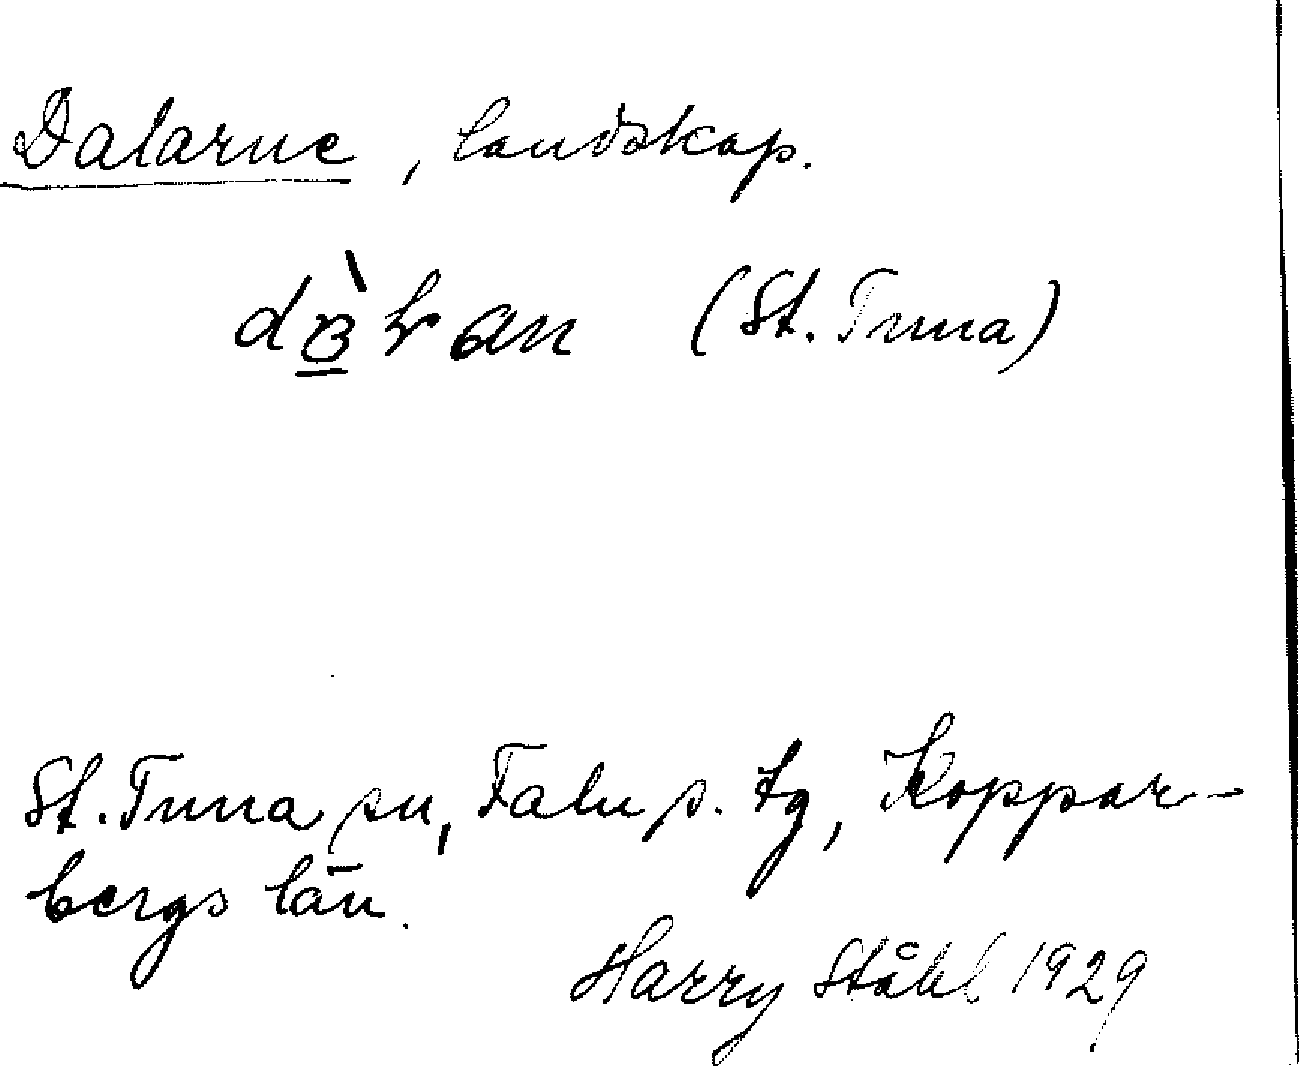 Dalarne, landskap.
(St. Tuna)
St. Tuna sn, Falu s. tg, Koppar-
bergs län.
Harry Ståhl 1929